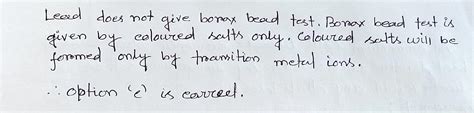 Lead does not give borax bead test. Borax bead test is
given by coloured salts only. Coloured salts will be
formed only by transition metal ions.
∴ option 'c' is correct.